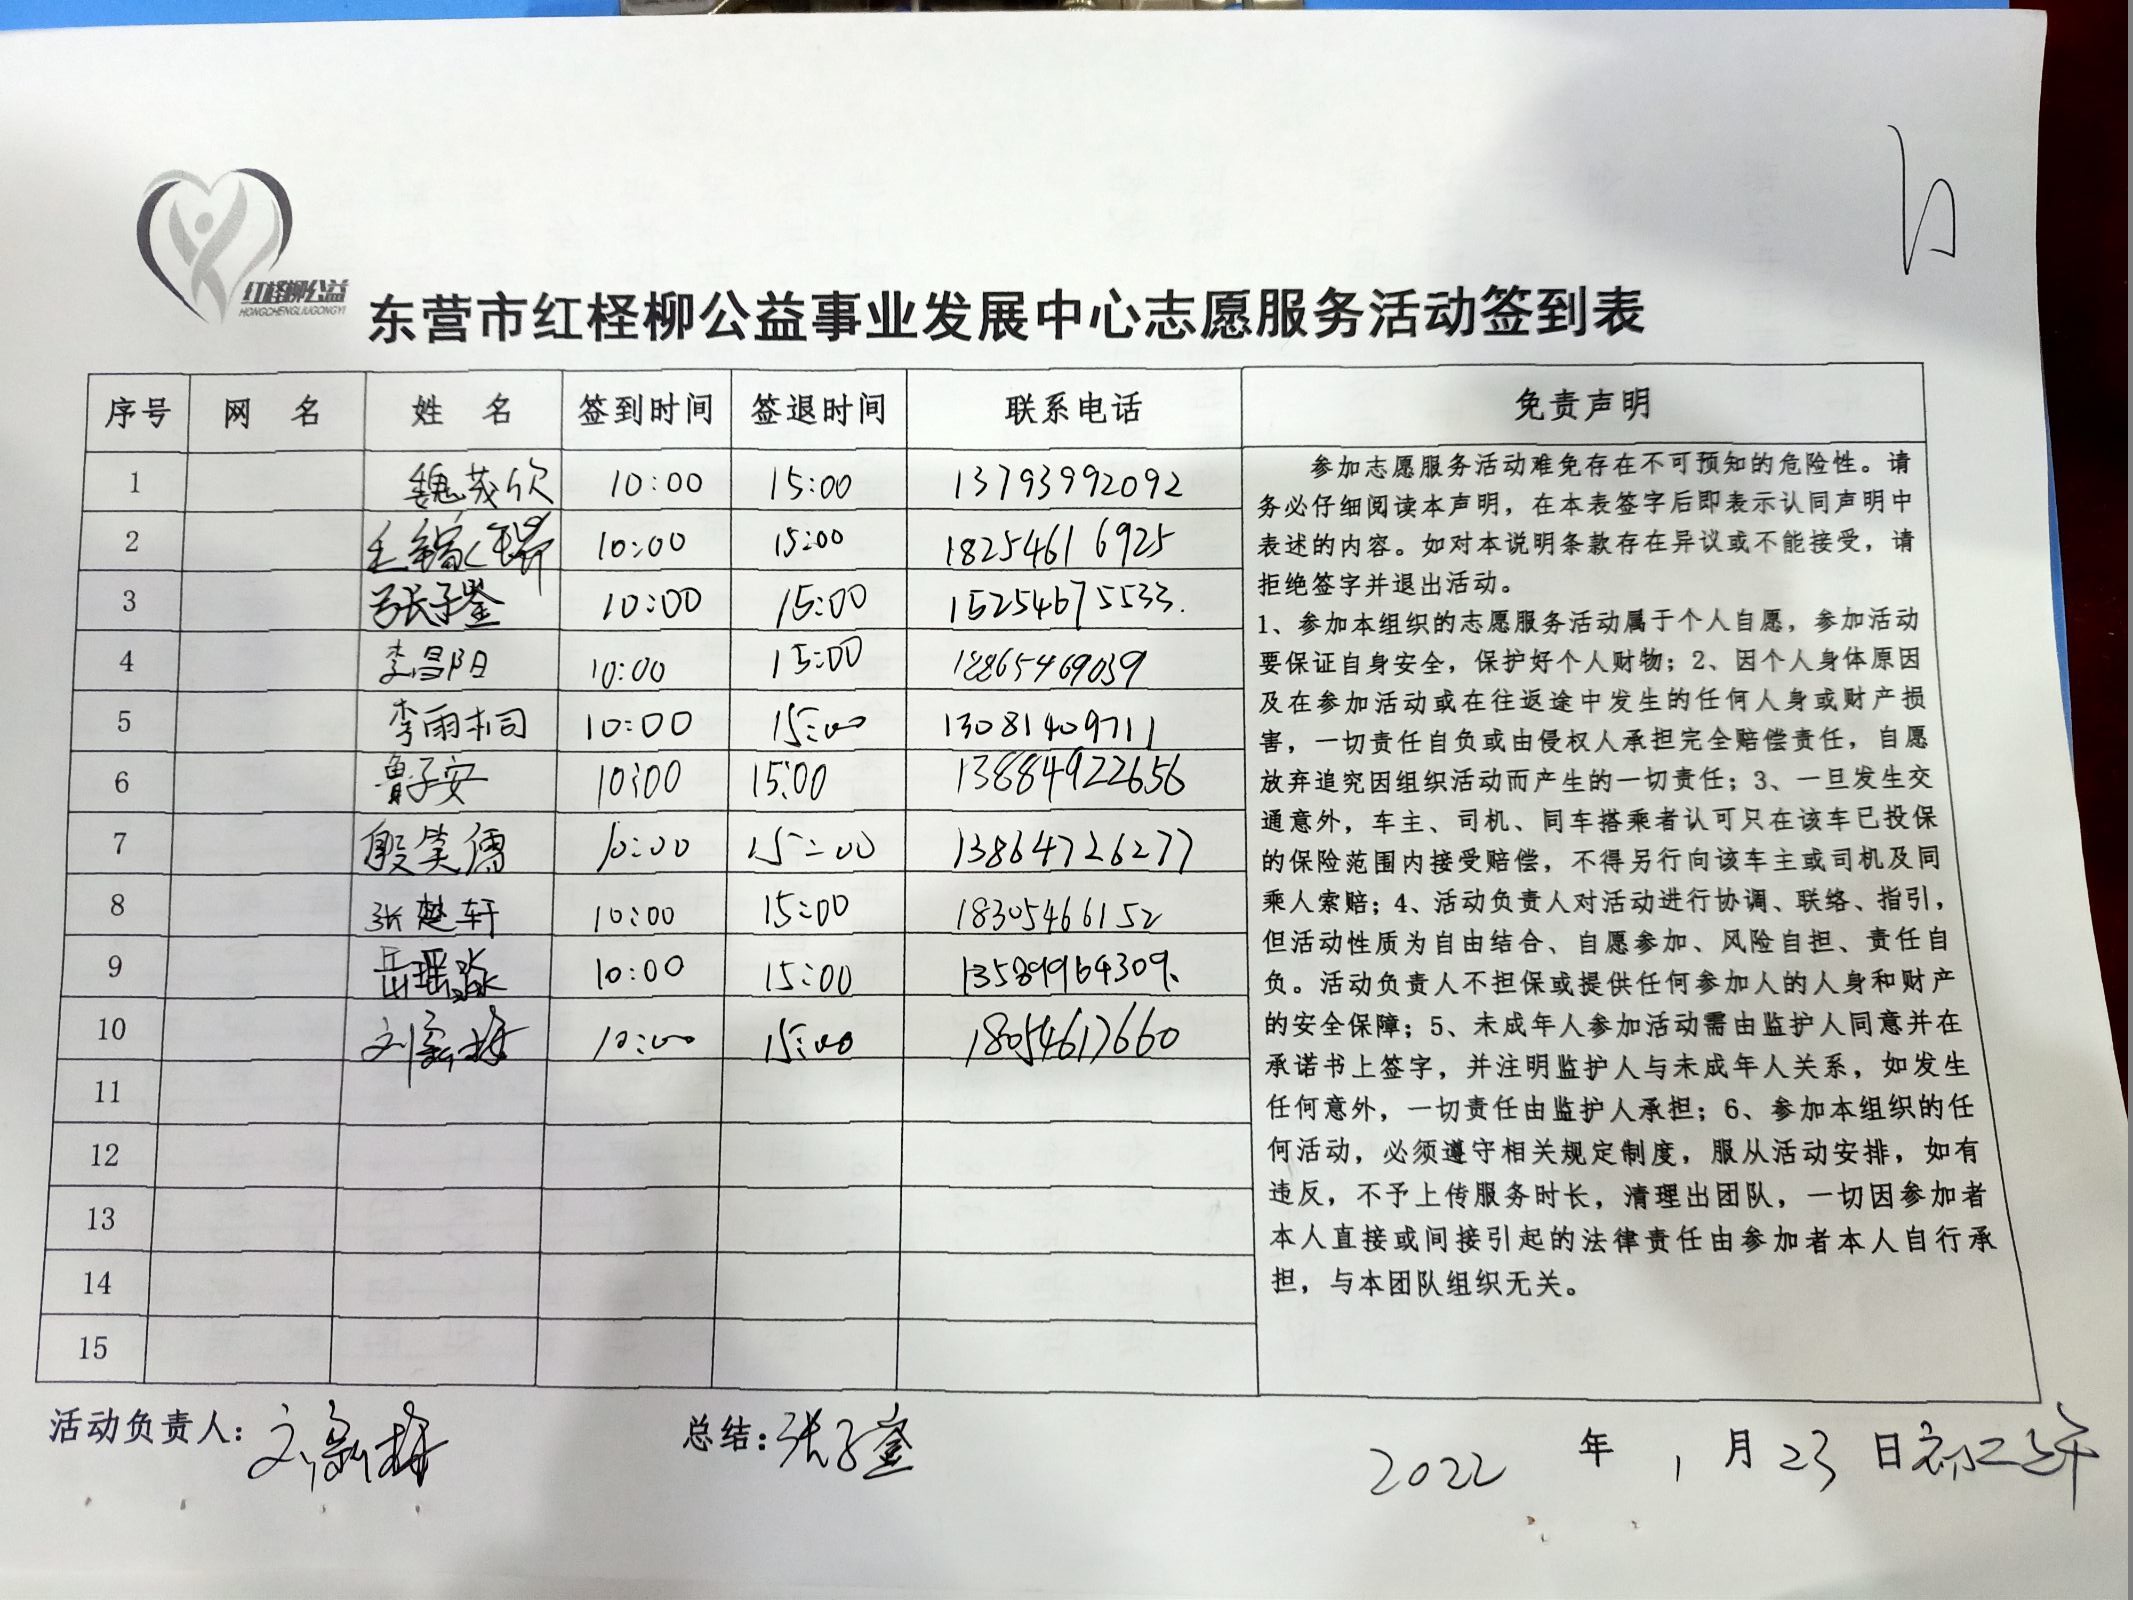 红柽柳公益
HONGCHENGLIUGONGYI
东营市红柽柳公益事业发展中心志愿服务活动签到表
序号 网 名 姓 名 签到时间 签退时间 联系电话 免责声明
1 魏茂欣 10:00 15:00 13793992092
2 10:00 15:00 18254616925
3 张子鋆 10:00 15:00 15254675533.
4 李昌阳 10:00 15:00 18865469039
5 李雨桐 10:00 15:00 13081409711
6 鲁子安 10:00 15:00 13884922656
7 殷笑儒 10:00 15:00 13864726277
8 张楚轩 10:00 15:00 18305466152
9 岳瑶淼 10:00 15:00 13589964309.
10 10:00 15:00 18054617660
11
12
13
14
15
参加志愿服务活动难免存在不可预知的危险性。请
务必仔细阅读本声明，在本表签字后即表示认同声明中
表述的内容。如对本说明条款存在异议或不能接受，请
拒绝签字并退出活动。
1、参加本组织的志愿服务活动属于个人自愿，参加活动
要保证自身安全，保护好个人财物；2、因个人身体原因
及在参加活动或在往返途中发生的任何人身或财产损
害，一切责任自负或由侵权人承担完全赔偿责任，自愿
放弃追究因组织活动而产生的一切责任；3、一旦发生交
通意外，车主、司机、同车搭乘者认可只在该车已投保
的保险范围内接受赔偿，不得另行向该车主或司机及同
乘人索赔；4、活动负责人对活动进行协调、联络、指引，
但活动性质为自由结合、自愿参加、风险自担、责任自
负。活动负责人不担保或提供任何参加人的人身和财产
的安全保障；5、未成年人参加活动需由监护人同意并在
承诺书上签字，并注明监护人与未成年人关系，如发生
任何意外，一切责任由监护人承担；6、参加本组织的任
何活动，必须遵守相关规定制度，服从活动安排，如有
违反，不予上传服务时长，清理出团队，一切因参加者
本人直接或间接引起的法律责任由参加者本人自行承
担，与本团队组织无关。
活动负责人： 总结：张子鋆 2022 年 1 月 23 日